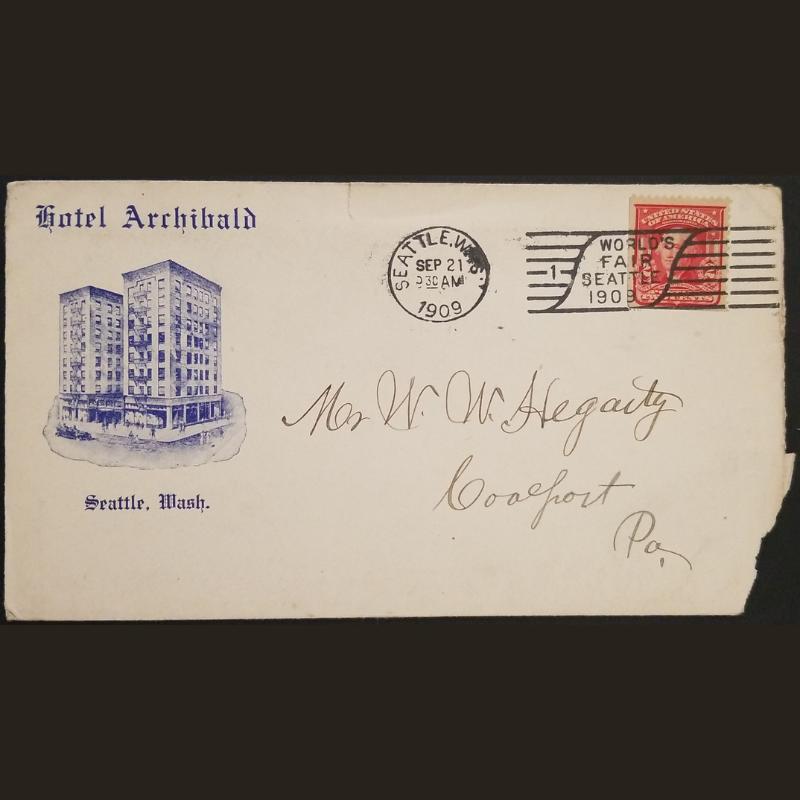 Hotel Archibald
Seattle, Wash.
SEATTLE, WASH.
SEP 21
9 30 AM
1909
1
WORLD'S
FAIR
SEATTLE
1909
UNITED STATES
OF AMERICA
Mr W. W. Hegarty
Coalport
Pa.